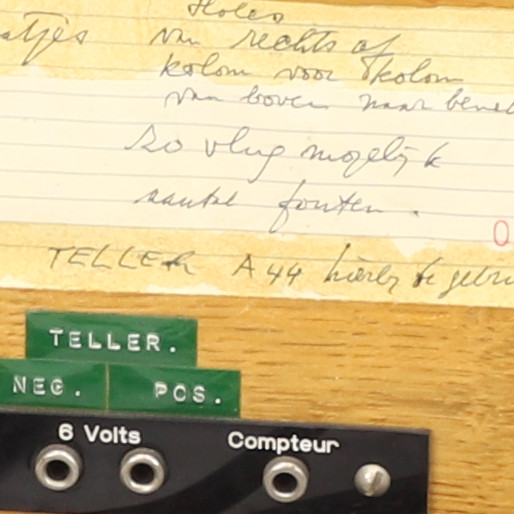 Holes
van rechts af
kolom voor kolom
van boven naar bened
zo vlug mogelijk
aantal fouten.
0
TELLER A44 hierbij te gebru
TELLER.
NEG. POS.
6 Volts Compteur